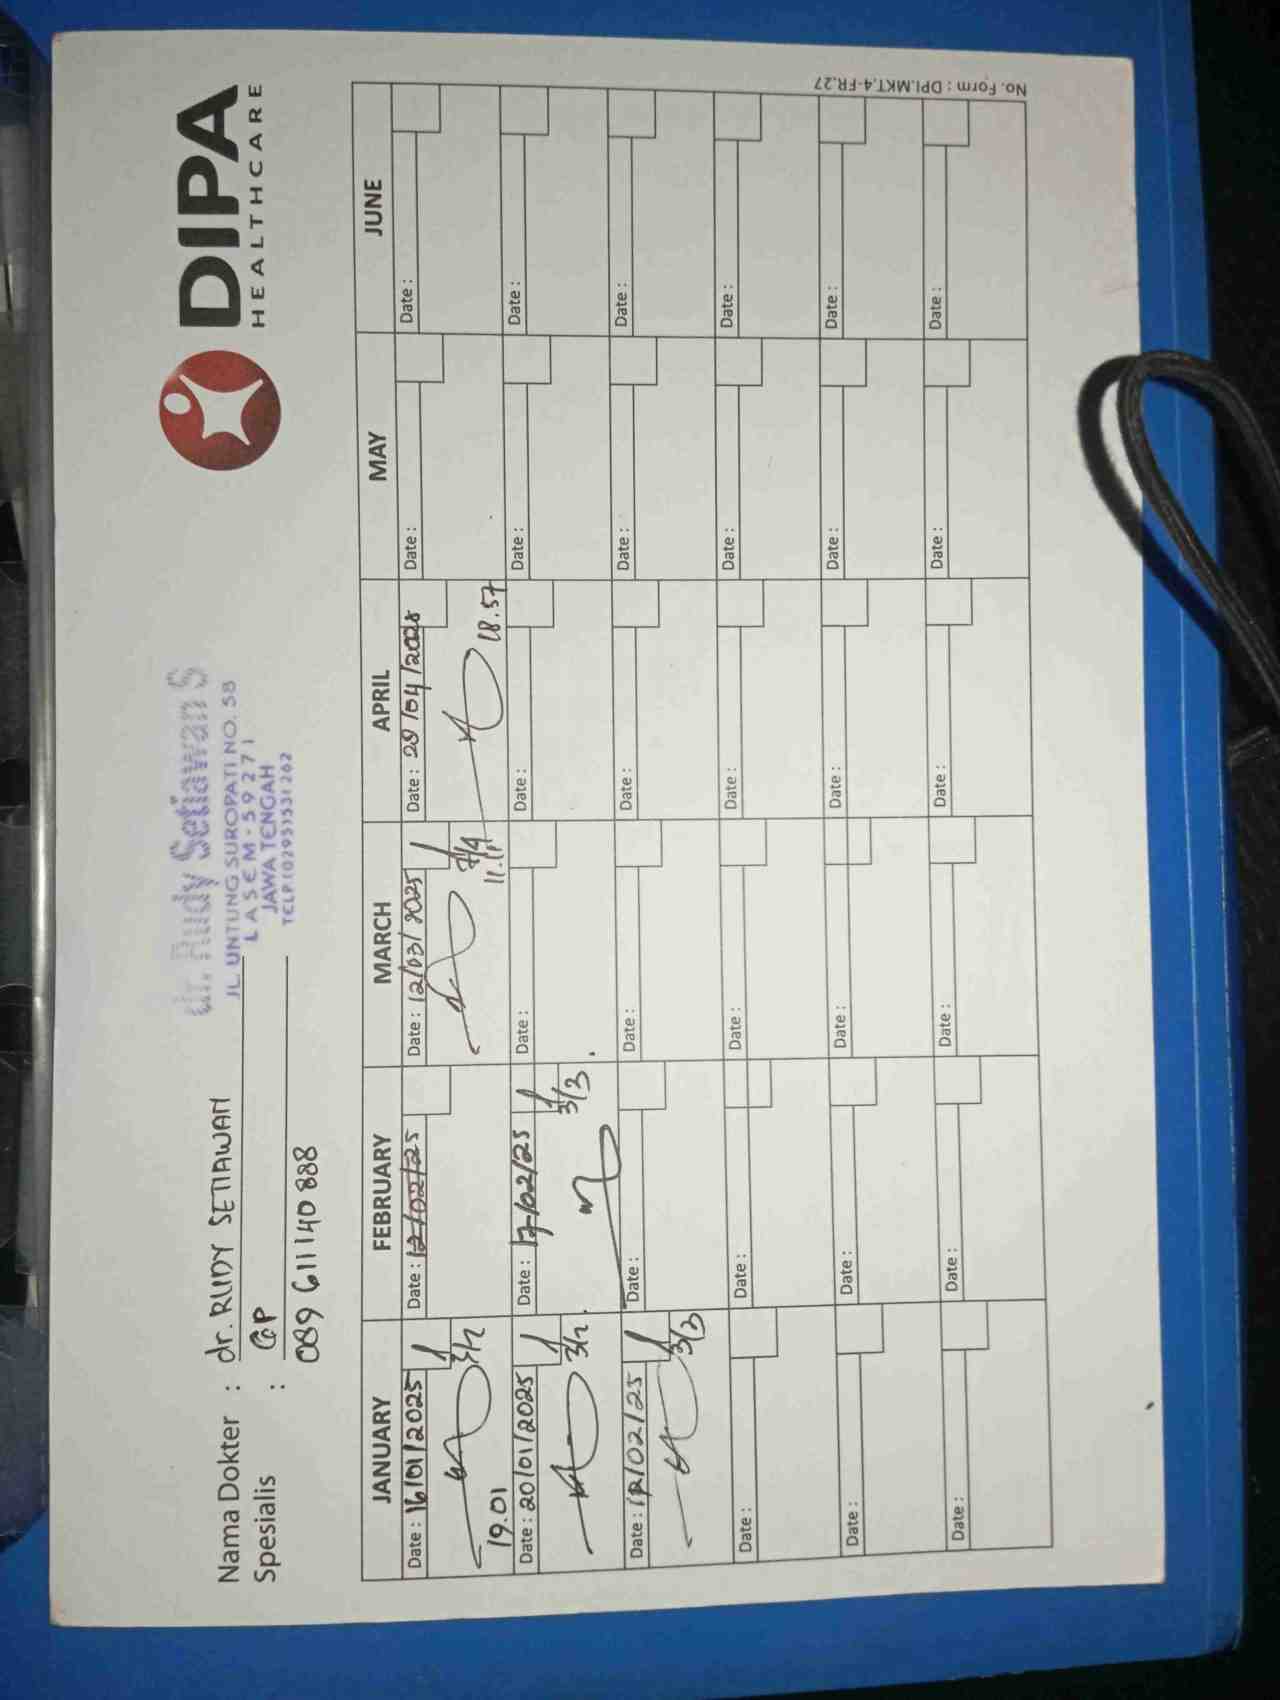 DIPA
HEALTHCARE
dr. Rudy Setiawan S
JL. UNTUNG SUROPATI NO. 58
LASEM - 59271
JAWA TENGAH
TELP (0295)531262
Nama Dokter : dr. RUDY SETIAWAN
Spesialis : GP
089 611140 888
JANUARY FEBRUARY MARCH APRIL MAY JUNE
Date : 16/01/2025 Date : 12/02/25 Date : 12/03/2025 Date : 28/04/2025 Date : Date :
3/2 7/4
19.01 11.11 18.57
Date : 20/01/2025 Date : 17/02/25 Date : Date : Date : Date :
3/2 3/3
Date : 12/02/25 Date : Date : Date : Date : Date :
3/3
Date : Date : Date : Date : Date : Date :
Date : Date : Date : Date : Date : Date :
Date : Date : Date : Date : Date : Date :
No. Form : DPI.MKT.4-FR.27